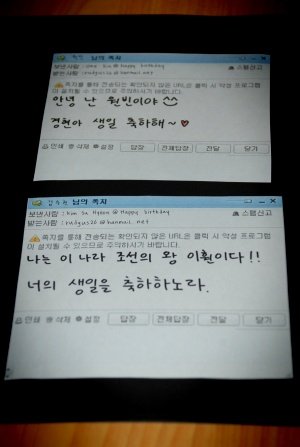 님의 쪽지
보낸사람 : @Happy birthday 스팸신고
받는사람 : @hanmail.net
쪽지를 통해 전송되는 확인되지 않은 URL은 클릭 시 악성 프로그램
이 설치될 수 있으므로 주의하시기 바랍니다.
안녕 난 원빈이야
경현아 생일 축하해~♡
인쇄 삭제 설정 답장 전체답장 전달 닫기
김수현 님의 쪽지
보낸사람 : kim Su Hyeon @Happy birthday 스팸신고
받는사람 : @hanmail.net
쪽지를 통해 전송되는 확인되지 않은 URL은 클릭 시 악성 프로그램
이 설치될 수 있으므로 주의하시기 바랍니다.
나는 이 나라 조선의 왕 이훤이다!!
너의 생일을 축하하노라.
인쇄 삭제 설정 답장 전체답장 전달 닫기